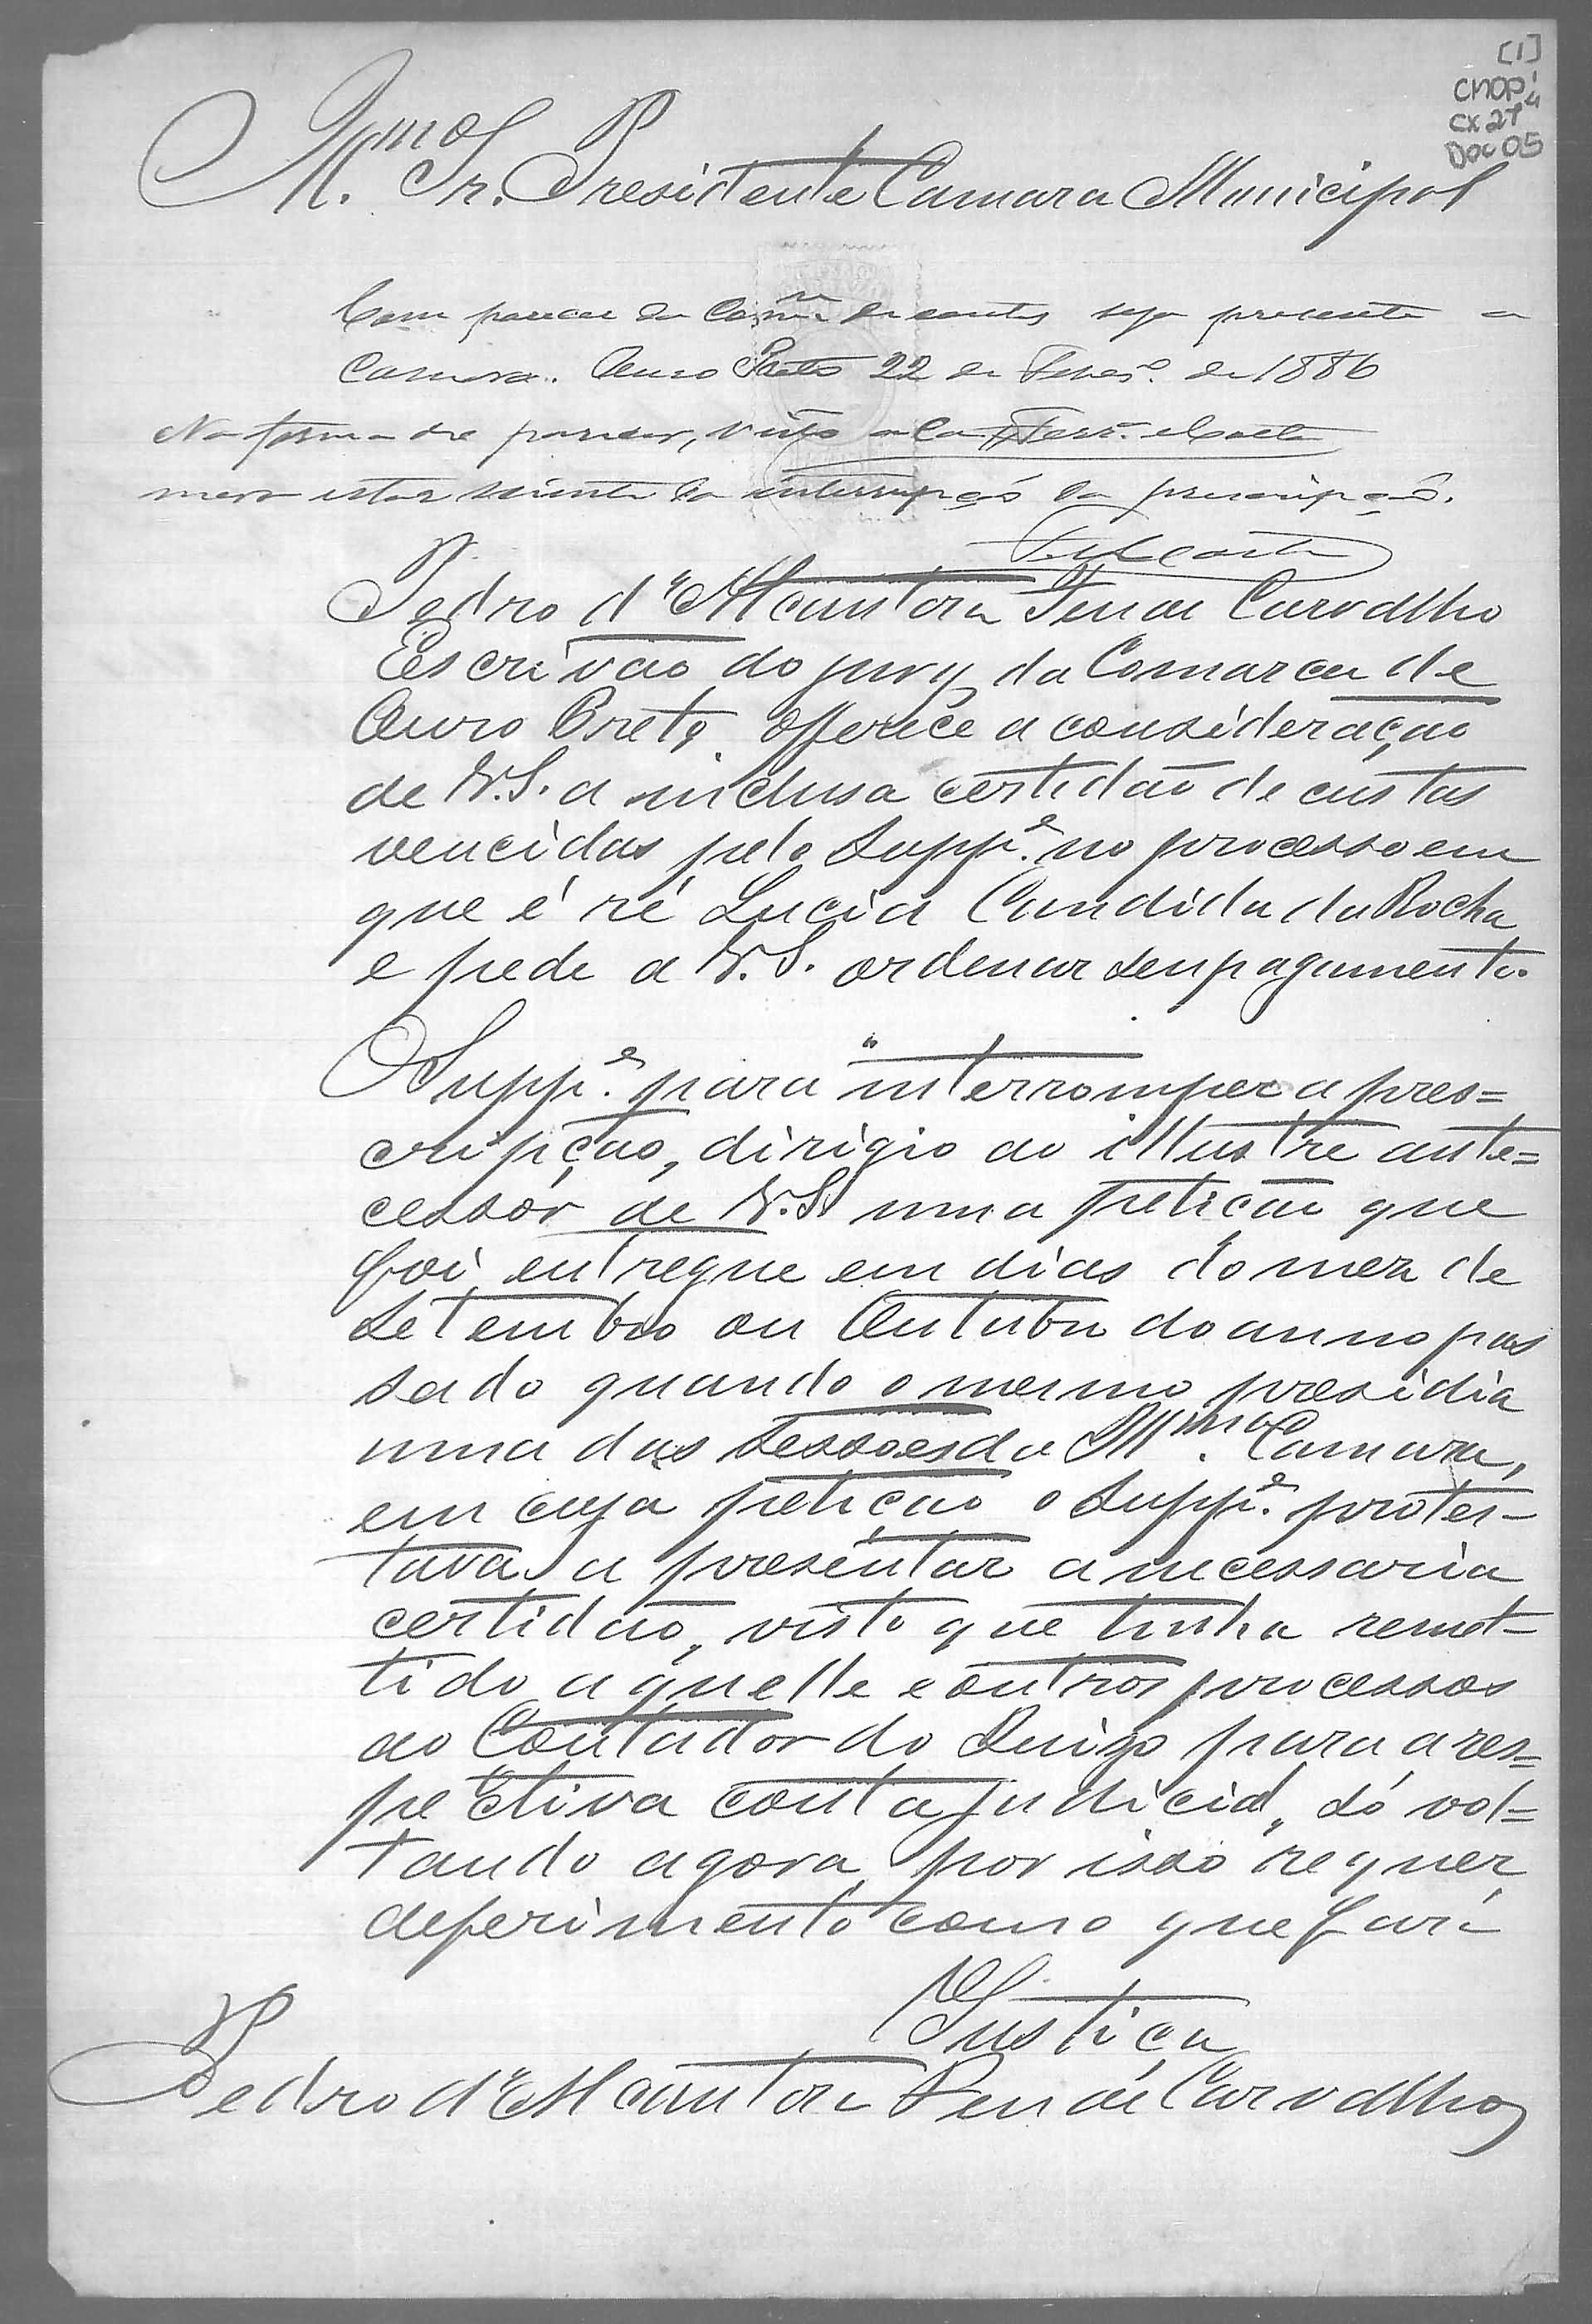 [1]
CMOP
CX 27
Doc 05
Illmo. Sr. Presidente Camara Municipal
Com parecer da Comm de contas seja presente a
Camara. Ouro Preto 22 de Fever.o de 1886
Na forma do parecer, visto a Ca
mara estar sciente da interrupção da prescripção.
Pedro d'Alcantara Feu de Carvalho
Escrivão do jury da Comarca de
Ouro Preto offerece a consideração
de V.S. a inclusa certidão de custas
vencidas pelo Supp.e no processo em
que é ré Lucia Candida da Rocha
e pede a V.S. ordenar seu pagamento.
O Supp.e para interromper a pres=
cripção, dirigio ao illustre ante=
cessor de V.S. uma petição que
foi entregue em dias do mez de
Setembro ou Outubro do anno pas
sado quando o mesmo presidia
uma das sessoes da Illma. Camara,
em cuja petição o Supp.e protes-
tava apresentar a necessaria
certidão, visto que tinha remet-
tido aquelle e outros processos
ao Contador do Juizo para a res=
pectiva conta judicial, só vol=
tando agora, por isso requer
deferimento como que fará
Justiça
Pedro d'Alcantara Feu de Carvalho